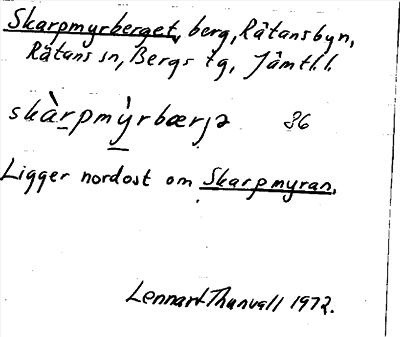 Skarpmyrberget, berg, Rätansbyn,
Rätans sn, Bergs tg, Jämtl.l.
skàrpmỳrbærjə 86
Ligger nordost om Skarpmyran.
Lennart Thunvall 1972.